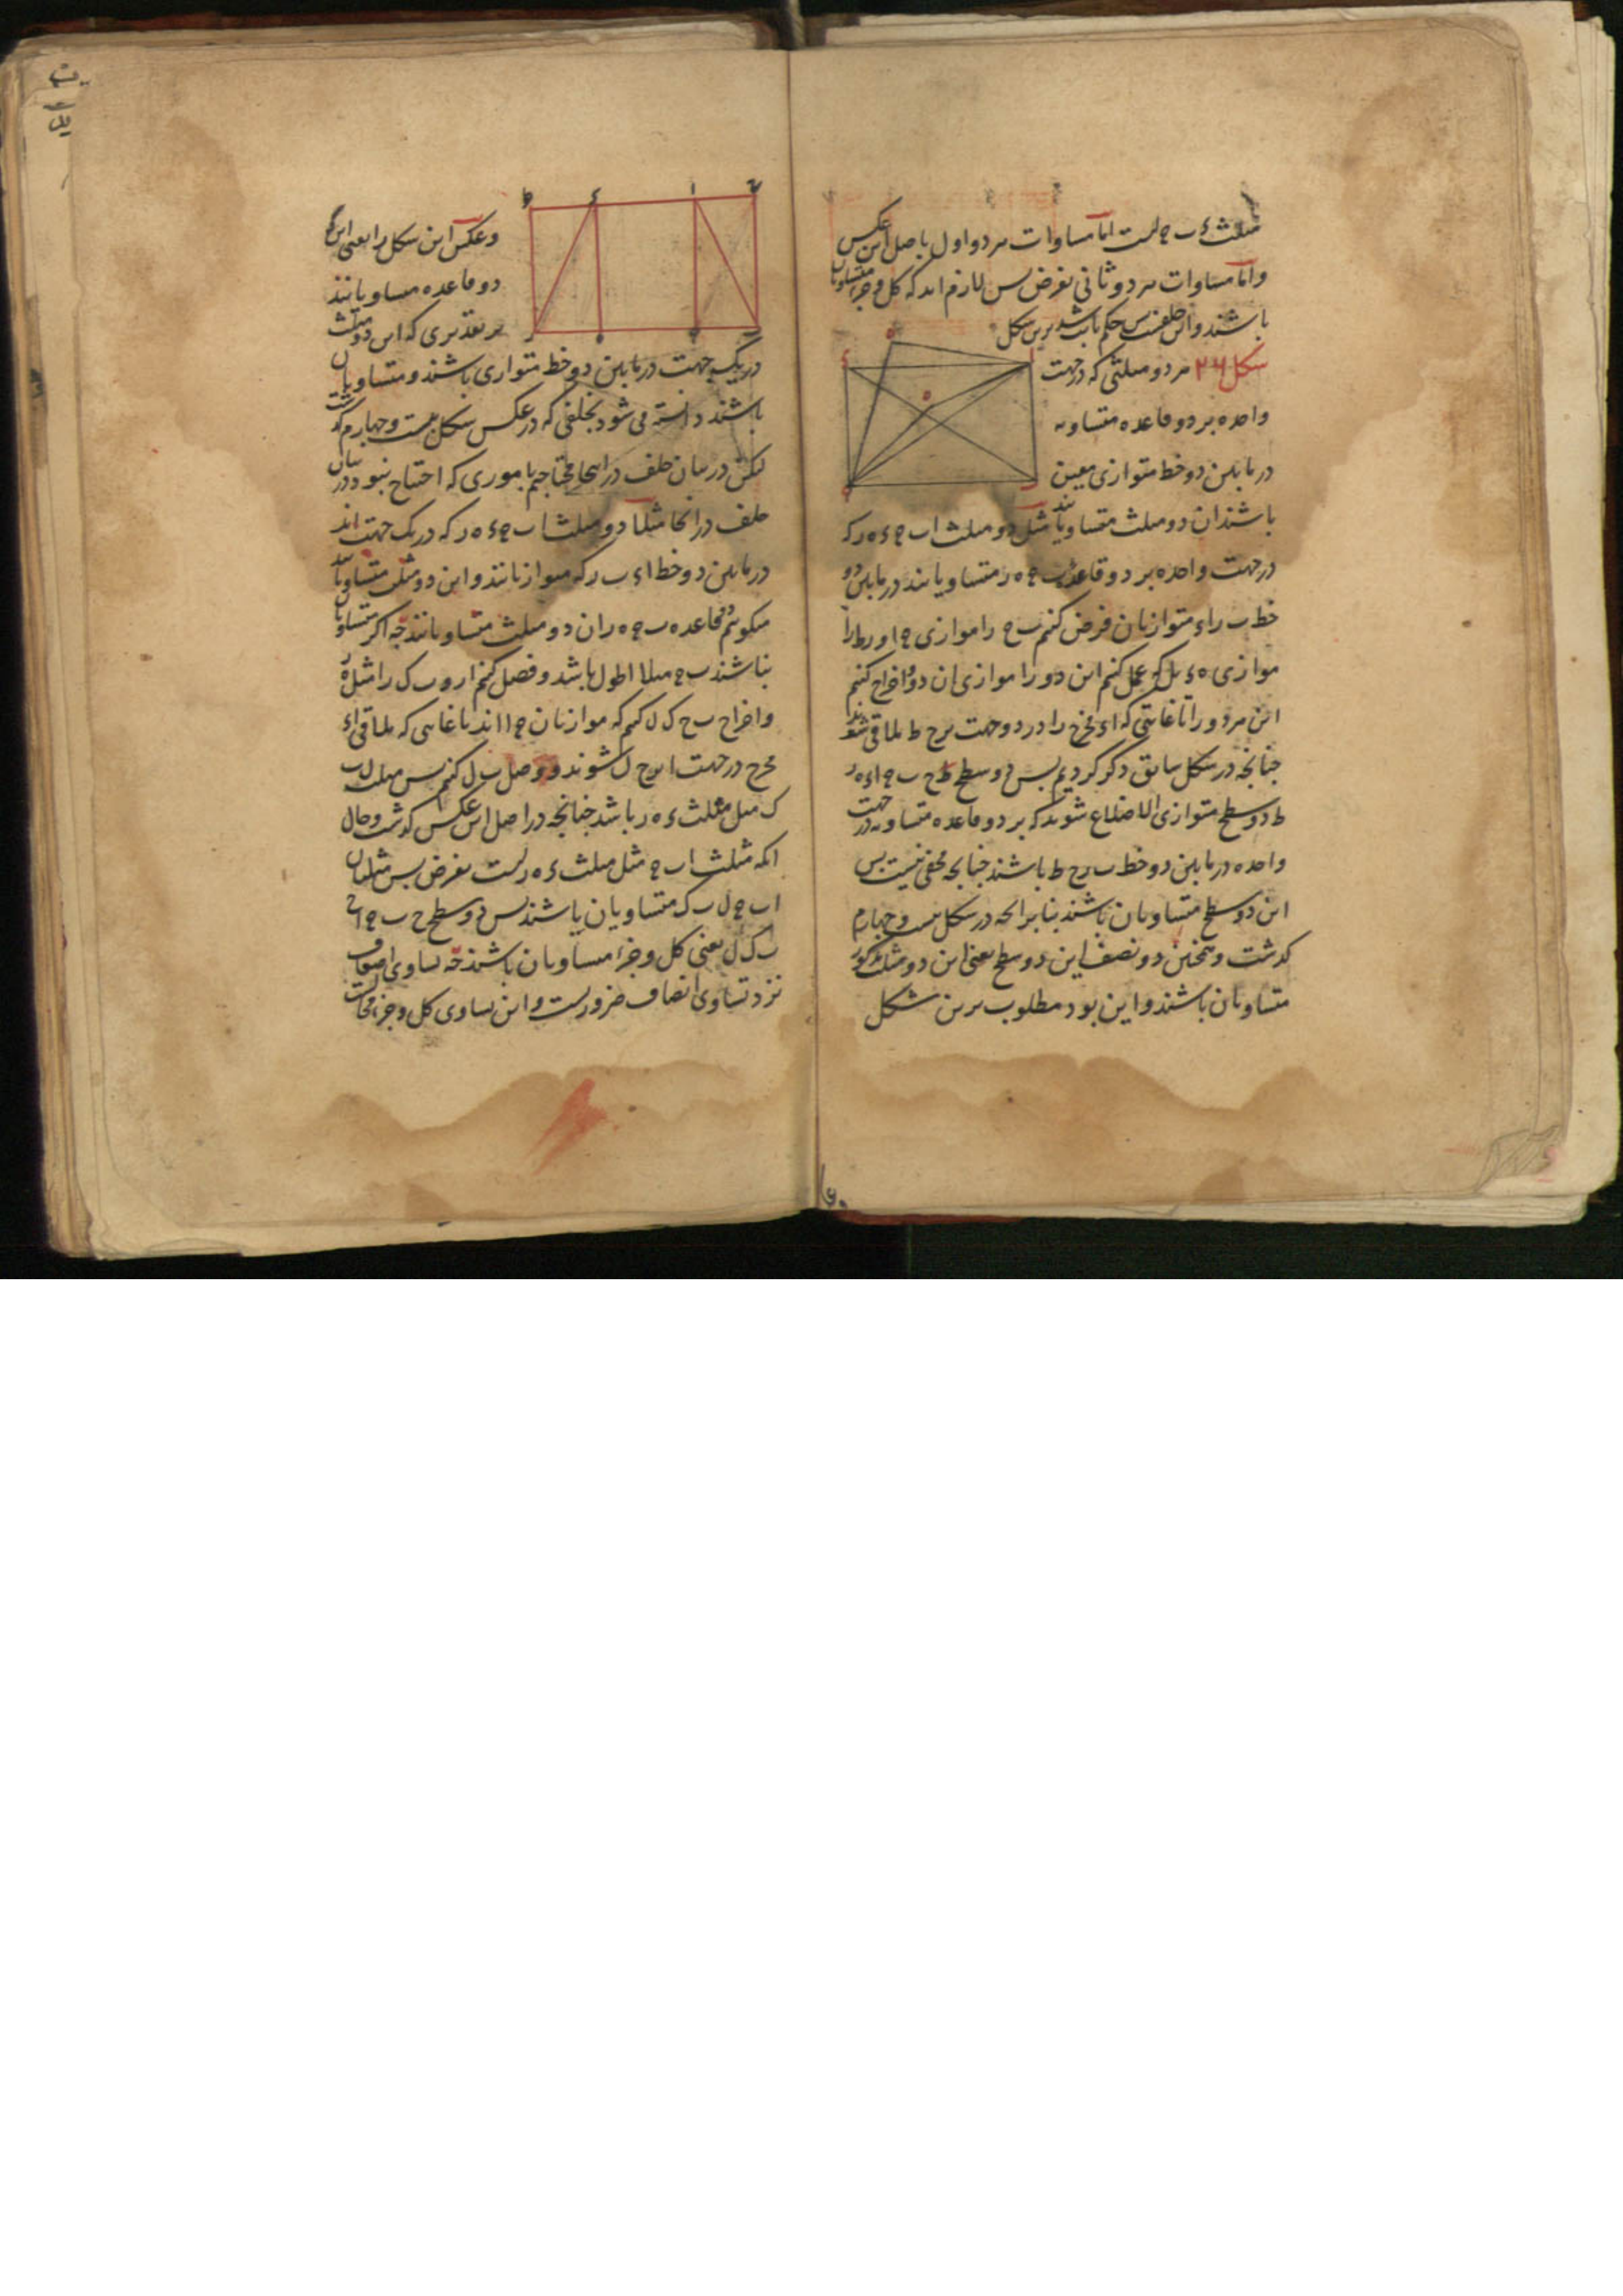 مثلث ء ب ج است اما مساوات هر دو اول باصل این عکس
و اما مساوات هر دو ثانی بفرض پس لازم اید که کل و جزء متساویان
باشند و این خلفست پس حکم ثابت شد برین شکل
شکل ۲۶ هر دو مثلثی که در جهت
واحده بر دو قاعده متساویه
در مابین دو خط متوازی معین
باشند ان دو مثلث متساویانند مثل دو مثلث اب ج ء ه ر که
در جهت واحده بر دو قاعده ب ج ه ر متساویانند در مابین دو
خط ب ر اء متوازیان فرض کنیم ب ح را موازی ج ا و ر ط را
موازی ه ء بل که عمل کنیم این دو را موازی ان دو و اخراج کنیم
این هر دو را تا غایتی که اء مخرج را در دو جهت بر ح ط ملاقی شوند
چنانچه در شکل سابق ذکر کردیم پس دو سطح ح ب ج ا ء ه ر
ط دو سطح متوازی الاضلاع شوند که بر دو قاعده متساویه در جهت
واحده در مابین دو خط ب ر ح ط باشند چنانچه مخفی نیست پس
این دو سطح متساویان باشند بنا برانچه در شکل بیست و چهارم
کذشت و همچنین دو نصف این دو سطح یعنی این دو مثلث مذکور
متساویان باشند و این بود مطلوب برین شکل
و عکس این شکل را یعنی این که
دو قاعده متساویانند
بر تقدیری که این دو مثلث
در یک جهت در مابین دو خط متوازی باشند و متساویان
باشند دانسته می شود بخلفی که در عکس شکل بیست و چهارم کذشت
لیکن در بیان خلف در اینجا محتاجیم باموری که احتیاج نبود در بیان
خلف در انجا مثلا دو مثلث اب ج ء ه ر که در یک جهت اند
در مابین دو خط اء ب ر که متوازیانند و این دو مثلث متساویانند
میکوئیم دو قاعده ب ج ه ر ان دو مثلث متساویانند چه اکر متساویان
نباشند ب ج مثلا اطول باشد و فصل کنیم ازو ب ک را مثل ه ر
و اخراج ب ح ک ل کنیم که موازیان ج ا اند تا غایتی که ملاقی اء
مخرج در جهت ا بر ح ل شوند و وصل ب ل کنیم پس مثلث ل ب
ک مثل مثلث ء ه ر باشد چنانچه در اصل این عکس کذشت و حال
انکه مثلث اب ج مثل مثلث ء ه ر است بفرض پس مثلثان
اب ج ل ب ک متساویان باشند پس دو سطح ح ب ج ا ح
ب ک ل یعنی کل و جزء متساویان باشند چه تساوی اضعاف
نزد تساوی انصاف ضروریست و این تساوی کل و جزء محالست